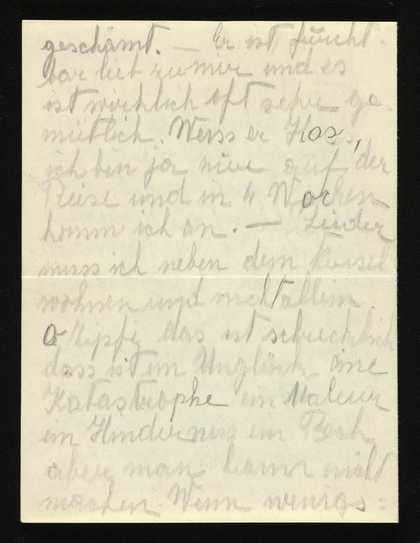 geschämt. — Er ist furcht-
bar lieb zu mir und es
ist wirklich oft sehr ge
mütlich. Weiss er
ich bin ja nur auf der
Reise und in 4 Wochen
komm ich an. — Leider
muss ich neben dem
wohnen und nicht allein.
O das ist schrecklich
dass ist ein Unglück eine
Katastrophe ein Maleur
ein Hinderniss ein Pech
aber man kann nicht
machen. Wenn wenigs=